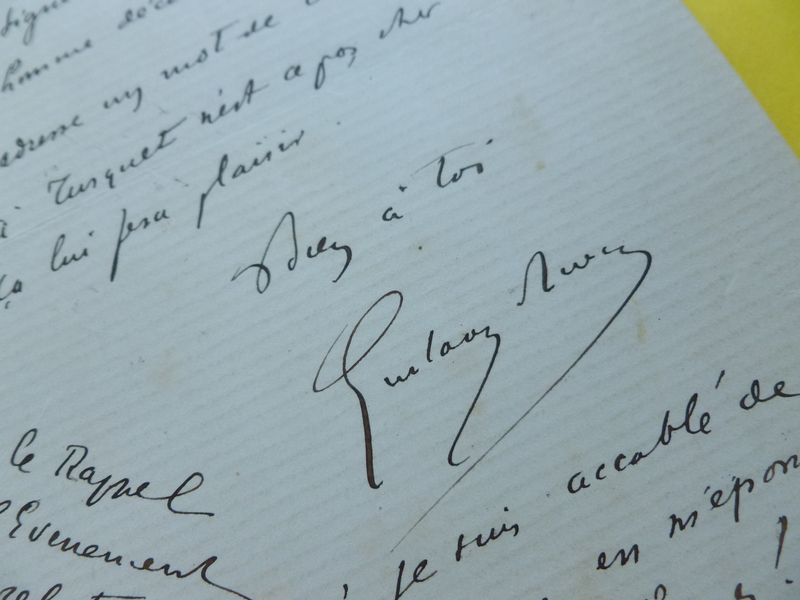 signe
homme déce
adresse un mot de
à Turquet n'est ce pas cher
ça lui fera plaisir.
Bien à toi
Gustave
le Rappel
l'Evenement
je suis accablé de
en m'épon
!